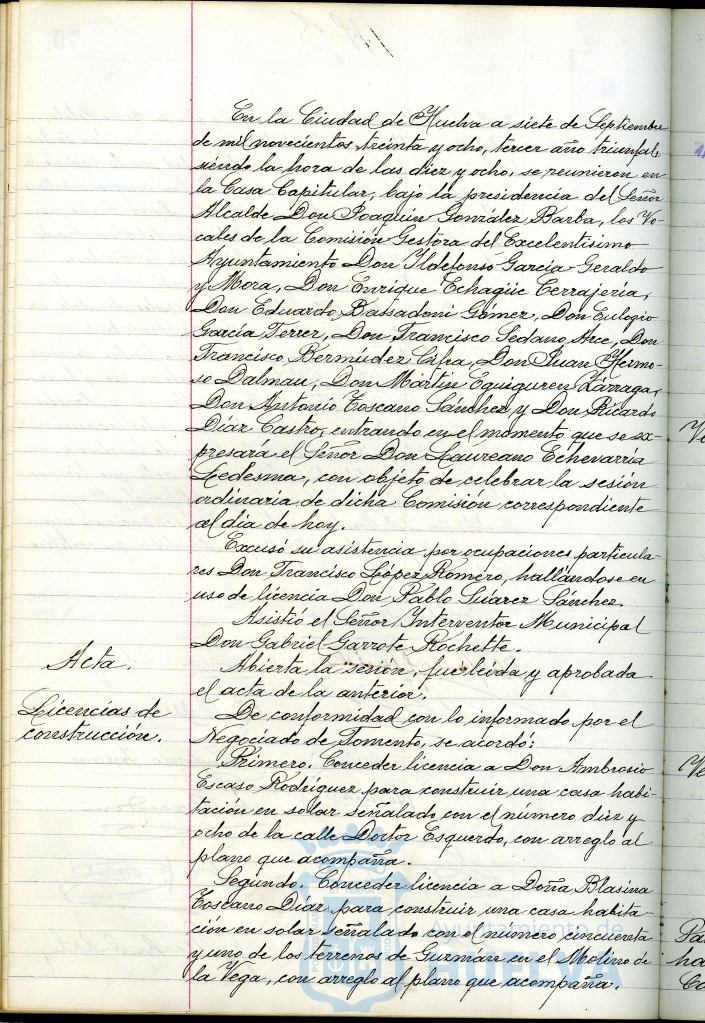 En la Ciudad de Huelva a siete de Septiembre
de mil novecientos treinta y ocho, tercer año triunfal,
siendo la hora de las diez y ocho, se reunieron en
la Casa Capitular, bajo la presidencia del Señor
Alcalde Don Joaquín González Barba, los Vo-
cales de la Comisión Gestora del Excelentísimo
Ayuntamiento Don Ildefonso García Geraldo
y Mora, Don Enrique Echagüe Cerrajería,
Don Eduardo Bassadoni Gómez, Don Eulogio
García Ferrer, Don Francisco Sedano Arce, Don
Francisco Bermúdez Cifra, Don Juan Hermo-
so Dalmau, Don Martín Eguiguren Zárraga,
Don Antonio Toscano Sánchez y Don Ricardo
Díaz Castro, entrando en el momento que se ex-
presará el Señor Don Laureano Echevarría
Ledesma, con objeto de celebrar la sesión
ordinaria de dicha Comisión correspondiente
al día de hoy.
Excusó su asistencia por ocupaciones particula-
res Don Francisco López Romero, hallándose en
uso de licencia Don Pablo Suárez Sánchez.
Asistió el Señor Interventor Municipal
Don Gabriel Garrote Rochette.
Acta.
Abierta la sesión, fue leída y aprobada
el acta de la anterior.
Licencias de
construcción.
De conformidad con lo informado por el
Negociado de Fomento, se acordó:
Primero. Conceder licencia a Don Ambrosio
Escaso Rodríguez para construir una casa habi-
tación en solar señalado con el número diez y
ocho de la calle Doctor Esquerdo, con arreglo al
plano que acompaña.
Segundo. Conceder licencia a Doña Blasina
Toscano Díaz para construir una casa habita-
ción en solar señalado con el número cincuenta
y uno de los terrenos de Guzmán en el Molino de
la Vega, con arreglo al plano que acompaña.
Ayuntamiento de
HUELVA